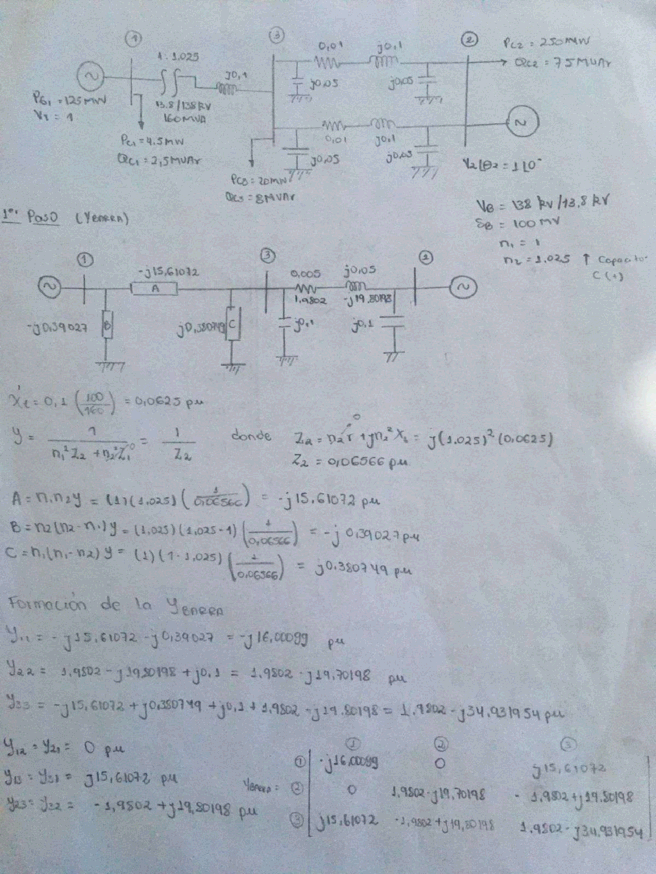 ① ③ ②
1:1.025
0,01 j0,1
PC2 = 250MW
QC2 = 75MVAr
j0,1
j0,05 j0,05
PG1 = 125MW
V1 = 1
13.8/138 kV
160MVA
0,01 j0,1
j0,05 j0,05
PC1 = 4.5MW
QC1 = 2,5MVAr
PC3 = 20MW
QC3 = 8MVAr
V2|θ2 = 1|0°
1er Paso (YBARRA)
VB = 138 kV/13,8 kV
SB = 100 MV
n1 = 1
n2 = 1.025 ↑
C(+)
① ③ ②
-j15,61072
A
0,005 j0,05
1,9802 -j19,80198
-j0,39027 B
j0,380749 C
j0,1 j0,1
Xt = 0,1 (100/160) = 0,0625 pu
donde
j(1.025)² (0,0625)
Z2 = 0,06566 pu
A = n1 n2 y = (1)(1.025) (1/0,06566) = -j15,61072 pu
B = n2(n2-n1)y = (1,025)(1,025-1) (1/0,06566) = -j 0,39027 pu
C = n1(n1-n2)y = (1)(1-1,025) (1/0,06566) = j0,380749 pu
Formación de la YBARRA
Y11 = -j15,61072 -j0,39027 = -j16,00099 pu
Y22 = 1,9802 -j19,80198 +j0,1 = 1,9802 -j19,70198 pu
Y33 = -j15,61072 +j0,380749 +j0,1 + 1,9802 -j19.80198 = 1.9802 -j34.931954 pu
Y12 = Y21 = 0 pu
Y13 = Y31 = j15,61072 pu
Y23 = Y32 = -1,9802 +j19,80198 pu
① ② ③
① -j16,00099 0 j15,61072
YBARRA = ② 0 1,9802-j19,70198 -1,9802+j19.80198
③ j15,61072 -1,9802+j19,80198 1.9802-j34,931954